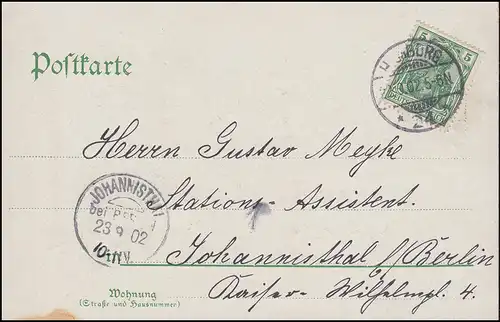 Postkarte
5 5
BURG
02.5-6N
* 24
Herrn Gustav Meyke
Stations-Assistent.
Johannisthal b/Berlin
Kaiser-Wilhelmpl. 4.
JOHANNISTHAL
bei
23 9 02
10-11V.
Wohnung
(Straße und Hausnummer)